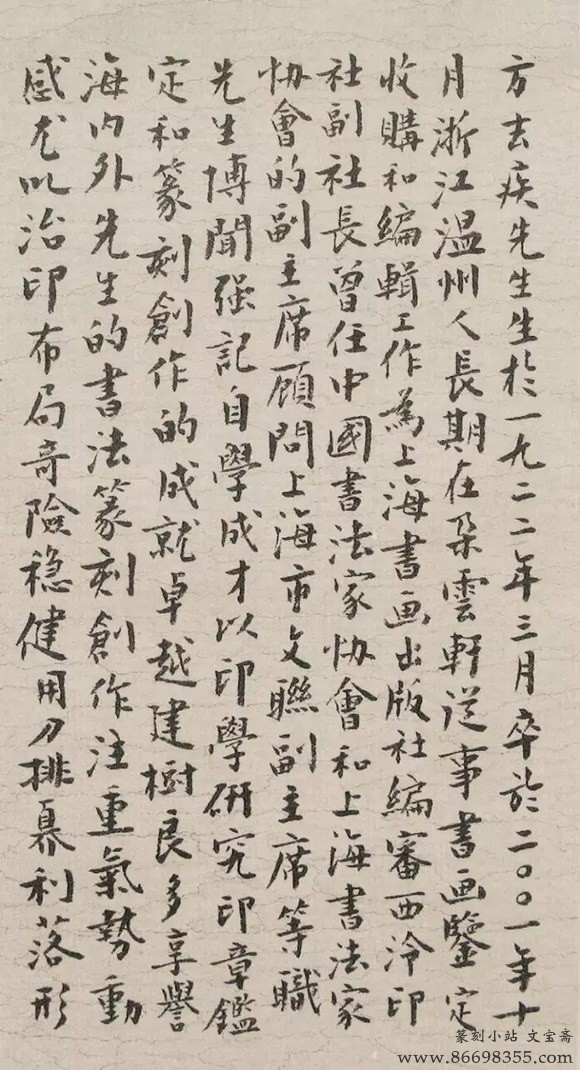 方去疾先生生於一九二二年三月卒於二〇〇一年十
月浙江温州人長期在朵雲軒從事書画鑒定
收購和編輯工作為上海書画出版社編審西泠印
社副社長曾任中國書法家协會和上海書法家
协會的副主席顾問上海市文聯副主席等職
先生博聞强記自學成才以印學研究印章鑑
定和篆刻創作的成就卓越建樹良多享譽
海内外先生的書法篆刻創作注重氣勢動
感尤以治印布局奇險穏健用刀排奡利落形
篆刻小站 文宝斋
www.86698355.com